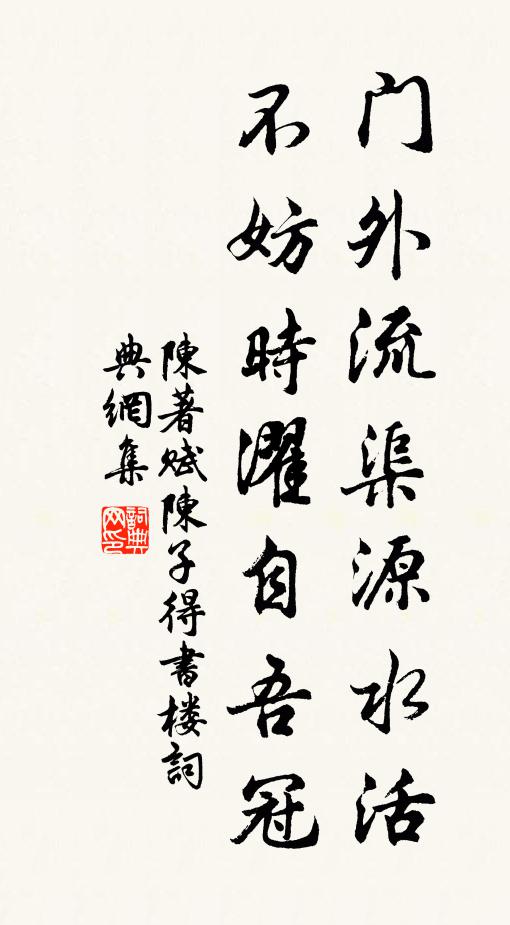 门外流渠源水活
不妨時濯自吾冠
陳著赋陳子得書楼詞
典網集
詞典
网印